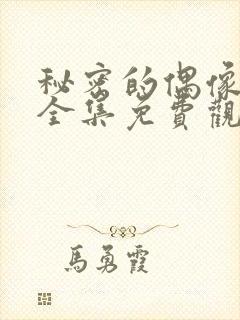 秘密的偶像
全集免費觀
馬勇霞